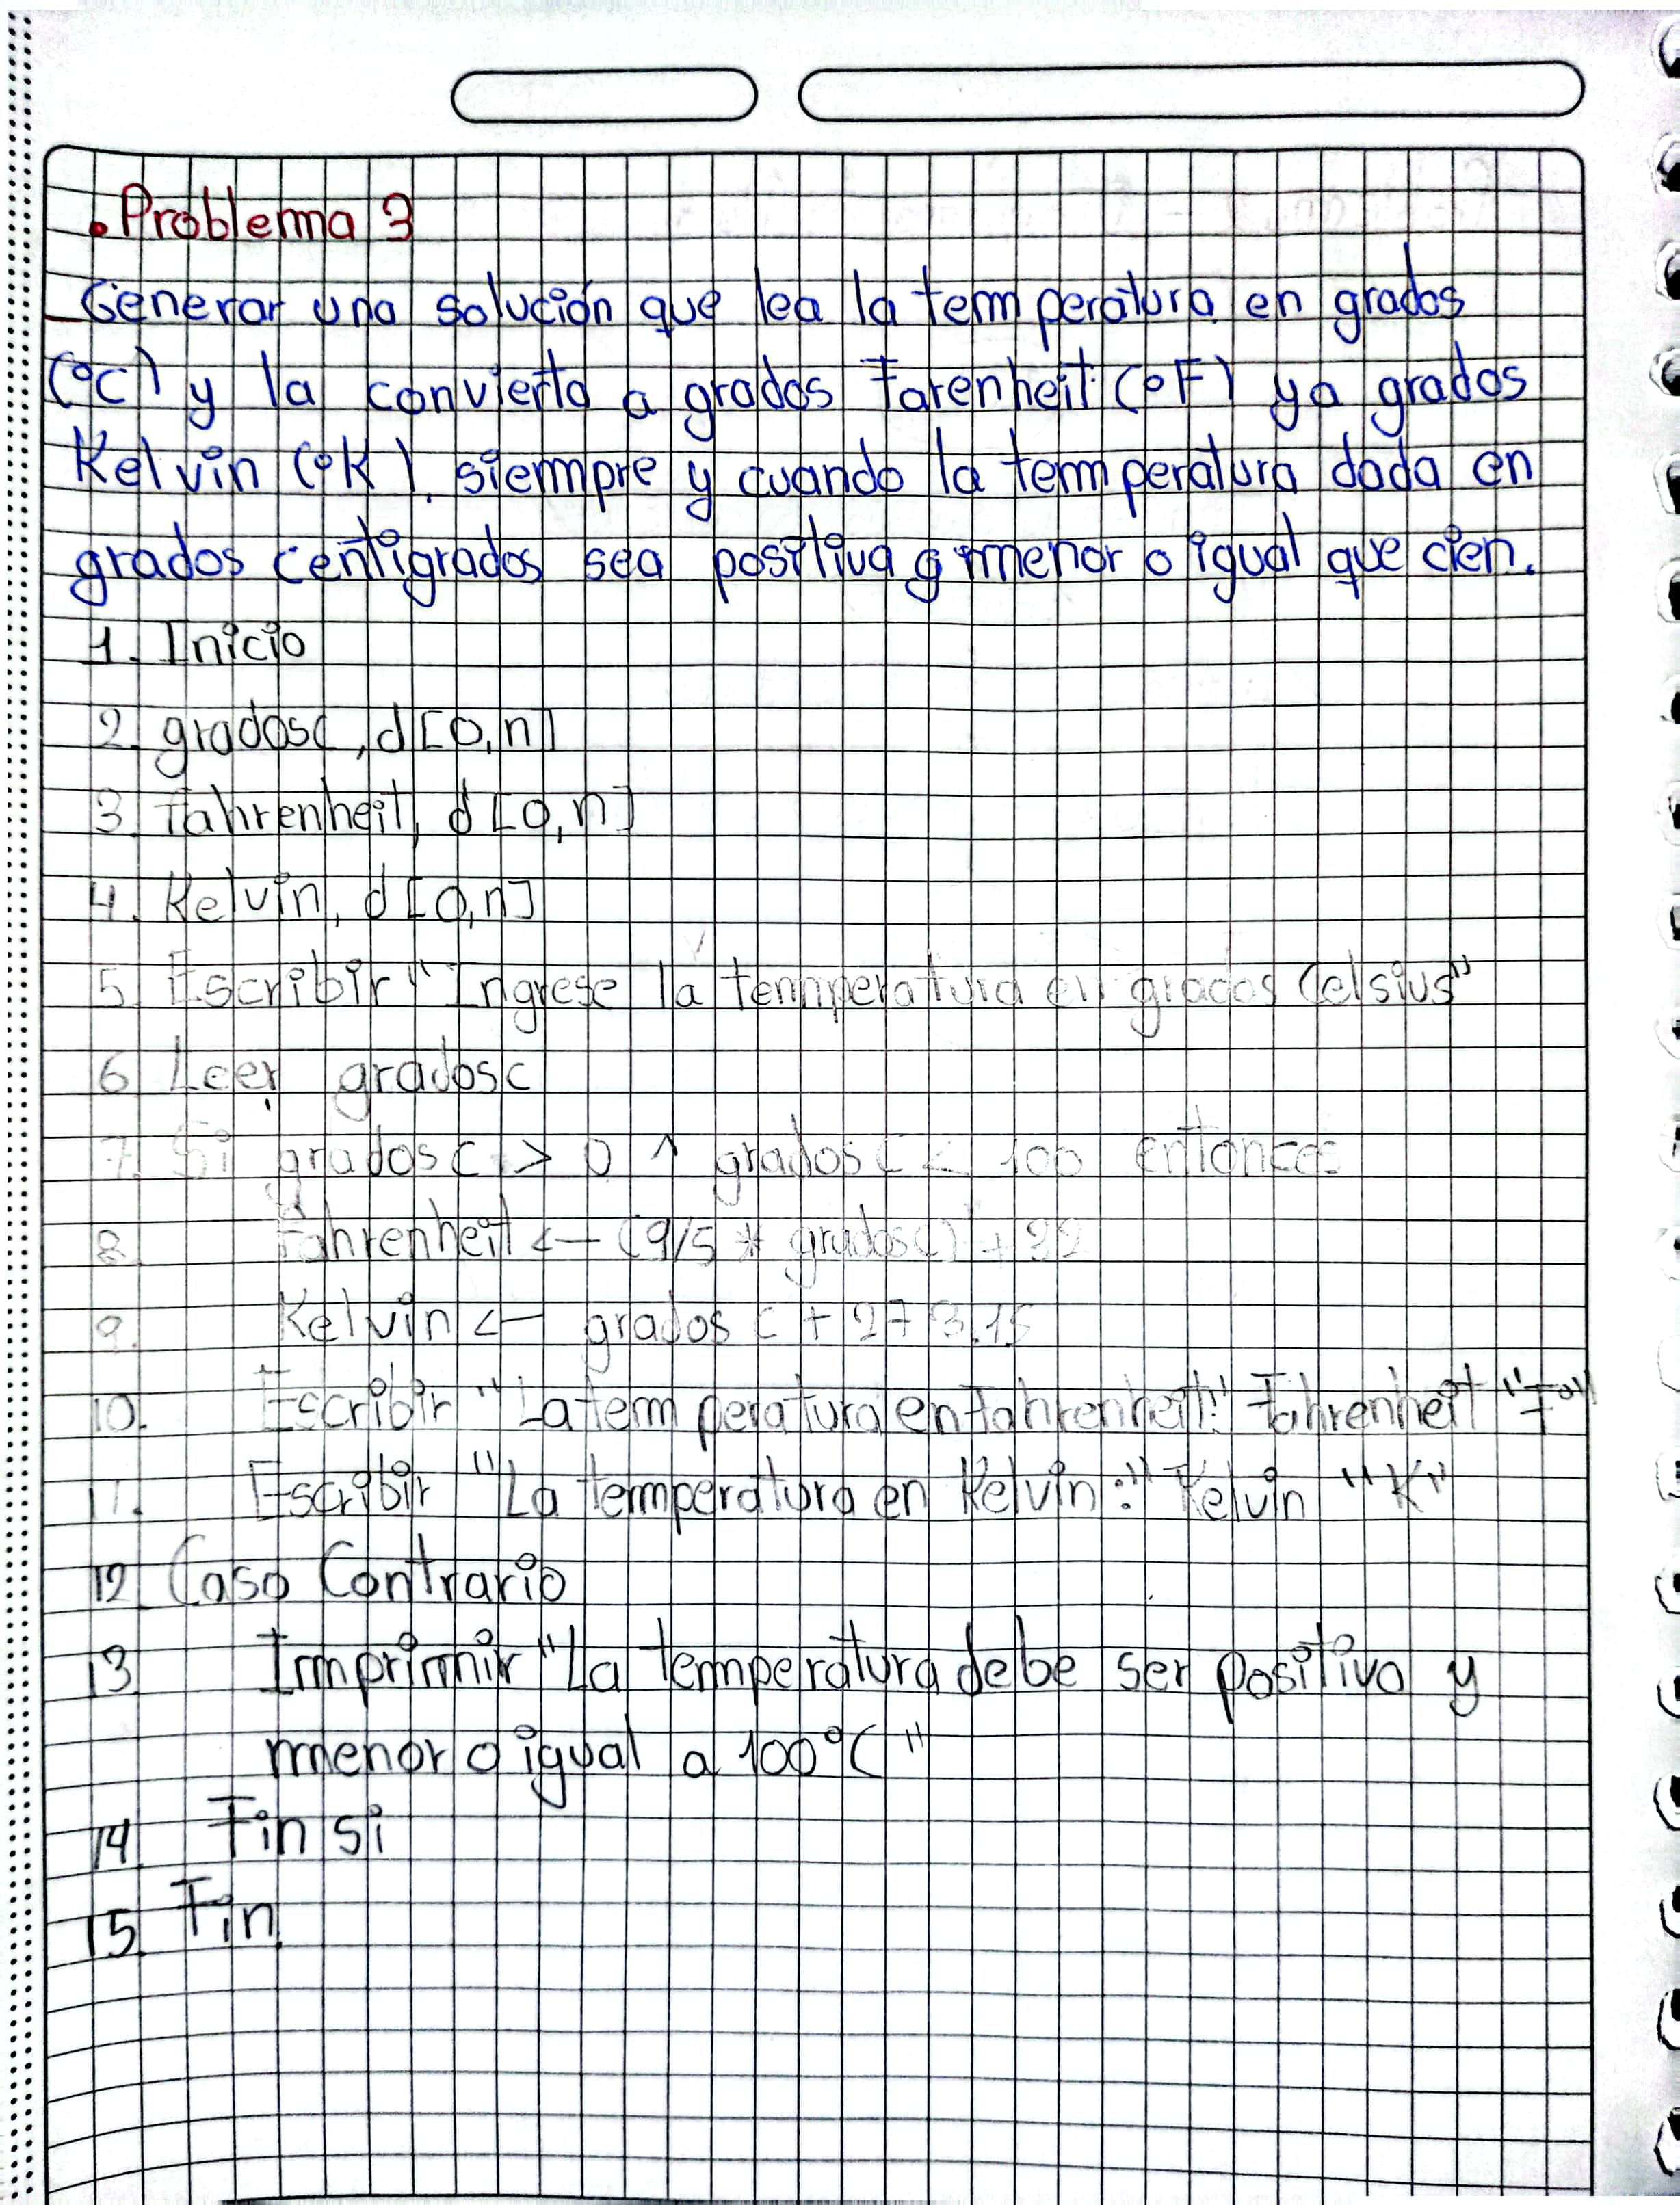 . Problema 3
Generar una solución que lea la temperatura en grados
(°C) y la convierta a grados Farenheit (°F) y a grados
Kelvin (°K). siempre y cuando la temperatura dada en
grados centigrados sea positiva y menor o igual que cien.
1. Inicio
2. gradosc, d[0,n]
3. fahrenheit, d[0,n]
4. Kelvin, d[0,n]
5. Escribir "Ingrese la temperatura en grados Celsius"
6 Leer gradosc
7. Si gradosc > 0 ^ gradosc < 100 entonces
8. Fahrenheit <- (9/5 * gradosc) + 32
9. Kelvin <- gradosc + 273.15
10. Escribir "La temperatura en fahrenheit:" Fahrenheit "F°"
11. Escribir "La temperatura en Kelvin:" Kelvin "K"
12 Caso Contrario
13 Imprimir "La temperatura debe ser positiva y
menor o igual a 100°C"
14. Fin si
15. Fin